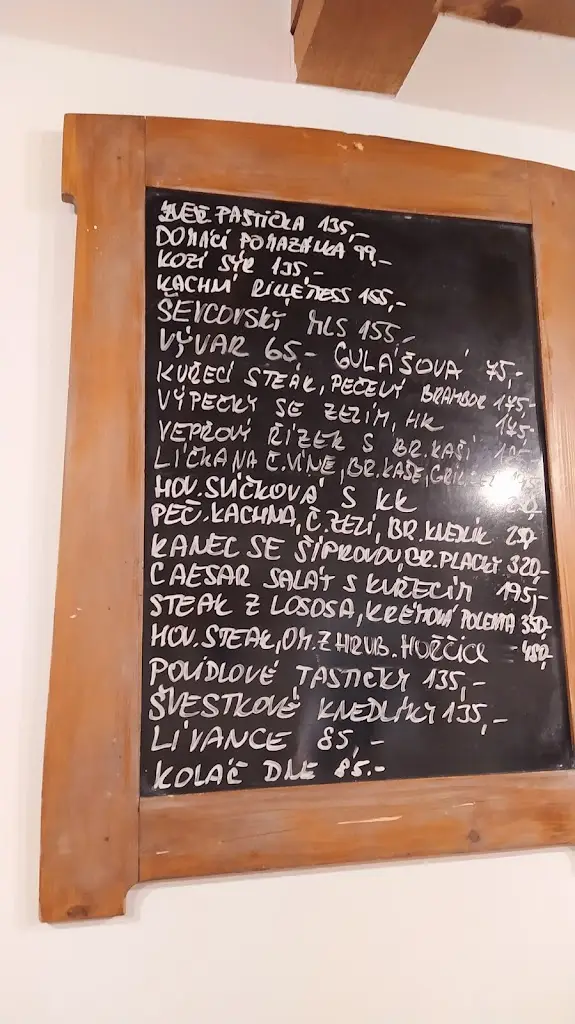 PASTIČKA 135,-
DOMÁCÍ POMAZÁNKA 99,-
KOZÍ SÝR 135,-
KACHNÍ RILLETESS 155,-
ŠEVCOVSKÝ MLS 155,-
VÝVAR 65- GULÁŠOVÁ 75,-
KUŘECÍ STEAK, PEČENÝ BRAMBOR 175,-
VÝPEČKY SE ZELÍM, HK 175,-
VEPŘOVÝ ŘÍZEK S BR.KAŠÍ
LÍČKA NA Č.VÍNĚ, BR.KAŠE,
HOV.SVÍČKOVÁ S KK
PEČ.KACHNA, Č.ZELÍ, BR.KNEDLÍK
KANEC SE ŠÍPKOVOU, BR.PLACKY 320,-
CAESAR SALÁT S KUŘECÍM 195,-
STEAK Z LOSOSA, KRÉMOVÁ POLENTA 350,-
HOV.STEAK, OM.Z HRUB.HOŘČICE 480,-
POVIDLOVÉ TAŠTIČKY 135,-
ŠVESTKOVÉ KNEDLÍKY 135,-
LÍVANCE 85,-
KOLÁČ DNE 85.-